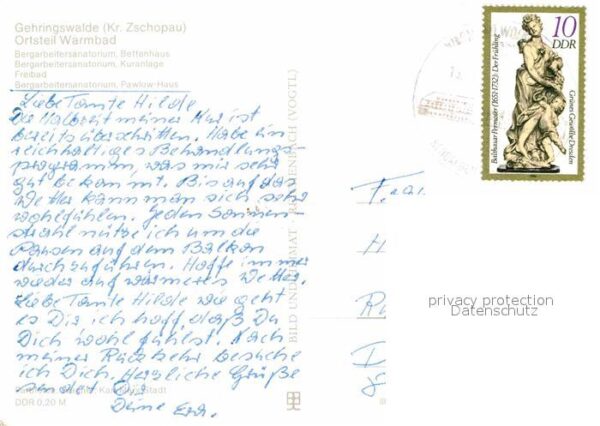 Gehringswalde (Kr. Zschopau)
Ortsteil Warmbad
Bergarbeitersanatorium, Bettenhaus
Bergarbeitersanatorium, Kuranlage
Freibad
Bergarbeitersanatorium, Pawlow-Haus
Liebe Tante Hilde
Die Halbzeit meiner Kur ist
bereits überschritten. Habe ein
reichhaltiges Behandlungs-
programm, was mir sehr
gut bekommt. Bis auf das
Wetter kann man sich sehr
wohlfühlen. Jeden Sonnen-
strahl nütze ich um die
Pausen auf dem Balkon
durchzuführen. Hoffe immer
wieder auf wärmeres Wetter.
Liebe Tante Hilde wie geht
es Dir ich hoff, daß Du
Dich wohl fühlst. Nach
meiner Rückkehr besuche
ich Dich. Herzliche Grüße
sendet Dir
Deine
DDR 0,20 M
BILD UND HEIMAT REICHENBACH (VOGTL)
10
DDR
Balthasar Permoser (1651-1732): Der Frühling
Grünes Gewölbe Dresden
Frau
H
D
privacy protection
Datenschutz